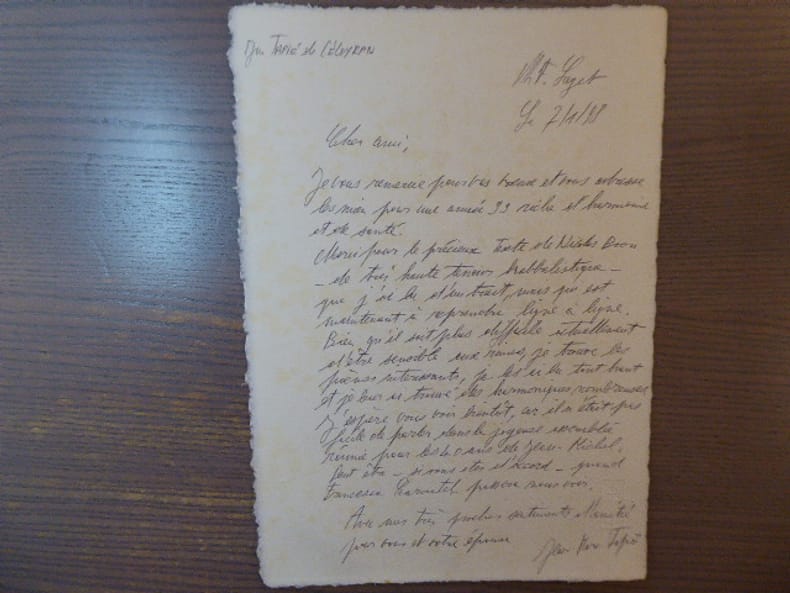 Tapié de Céleyran
Le 7/1/98
Cher ami,
Je vous remercie pour vos voeux et vous adresse
les miens pour une année 99 riche et harmonie
et de santé.
Merci pour le précieux Texte de Nicolas
- de très haute teneur kabbalistique -
que j'ai lu d'un trait, mais qui est
maintenant à reprendre ligne à ligne.
Bien qu'il soit plus difficile actuellement
d'être sensible aux rimes, je trouve les
pièces intéressantes, je les ai lu tout haut
et je leur ai trouvé des harmoniques nombreuses
J'espère vous voir bientôt, car il n'était pas
facile de parler dans la joyeuse assemblée
réunie pour les ans de Jean-Michel,
Peut être - si vous êtes d'accord - quand
passera nous voir.
Avec nos très proches sentiments d'amitié
pour vous et votre épouse
Jean Marc Tapié